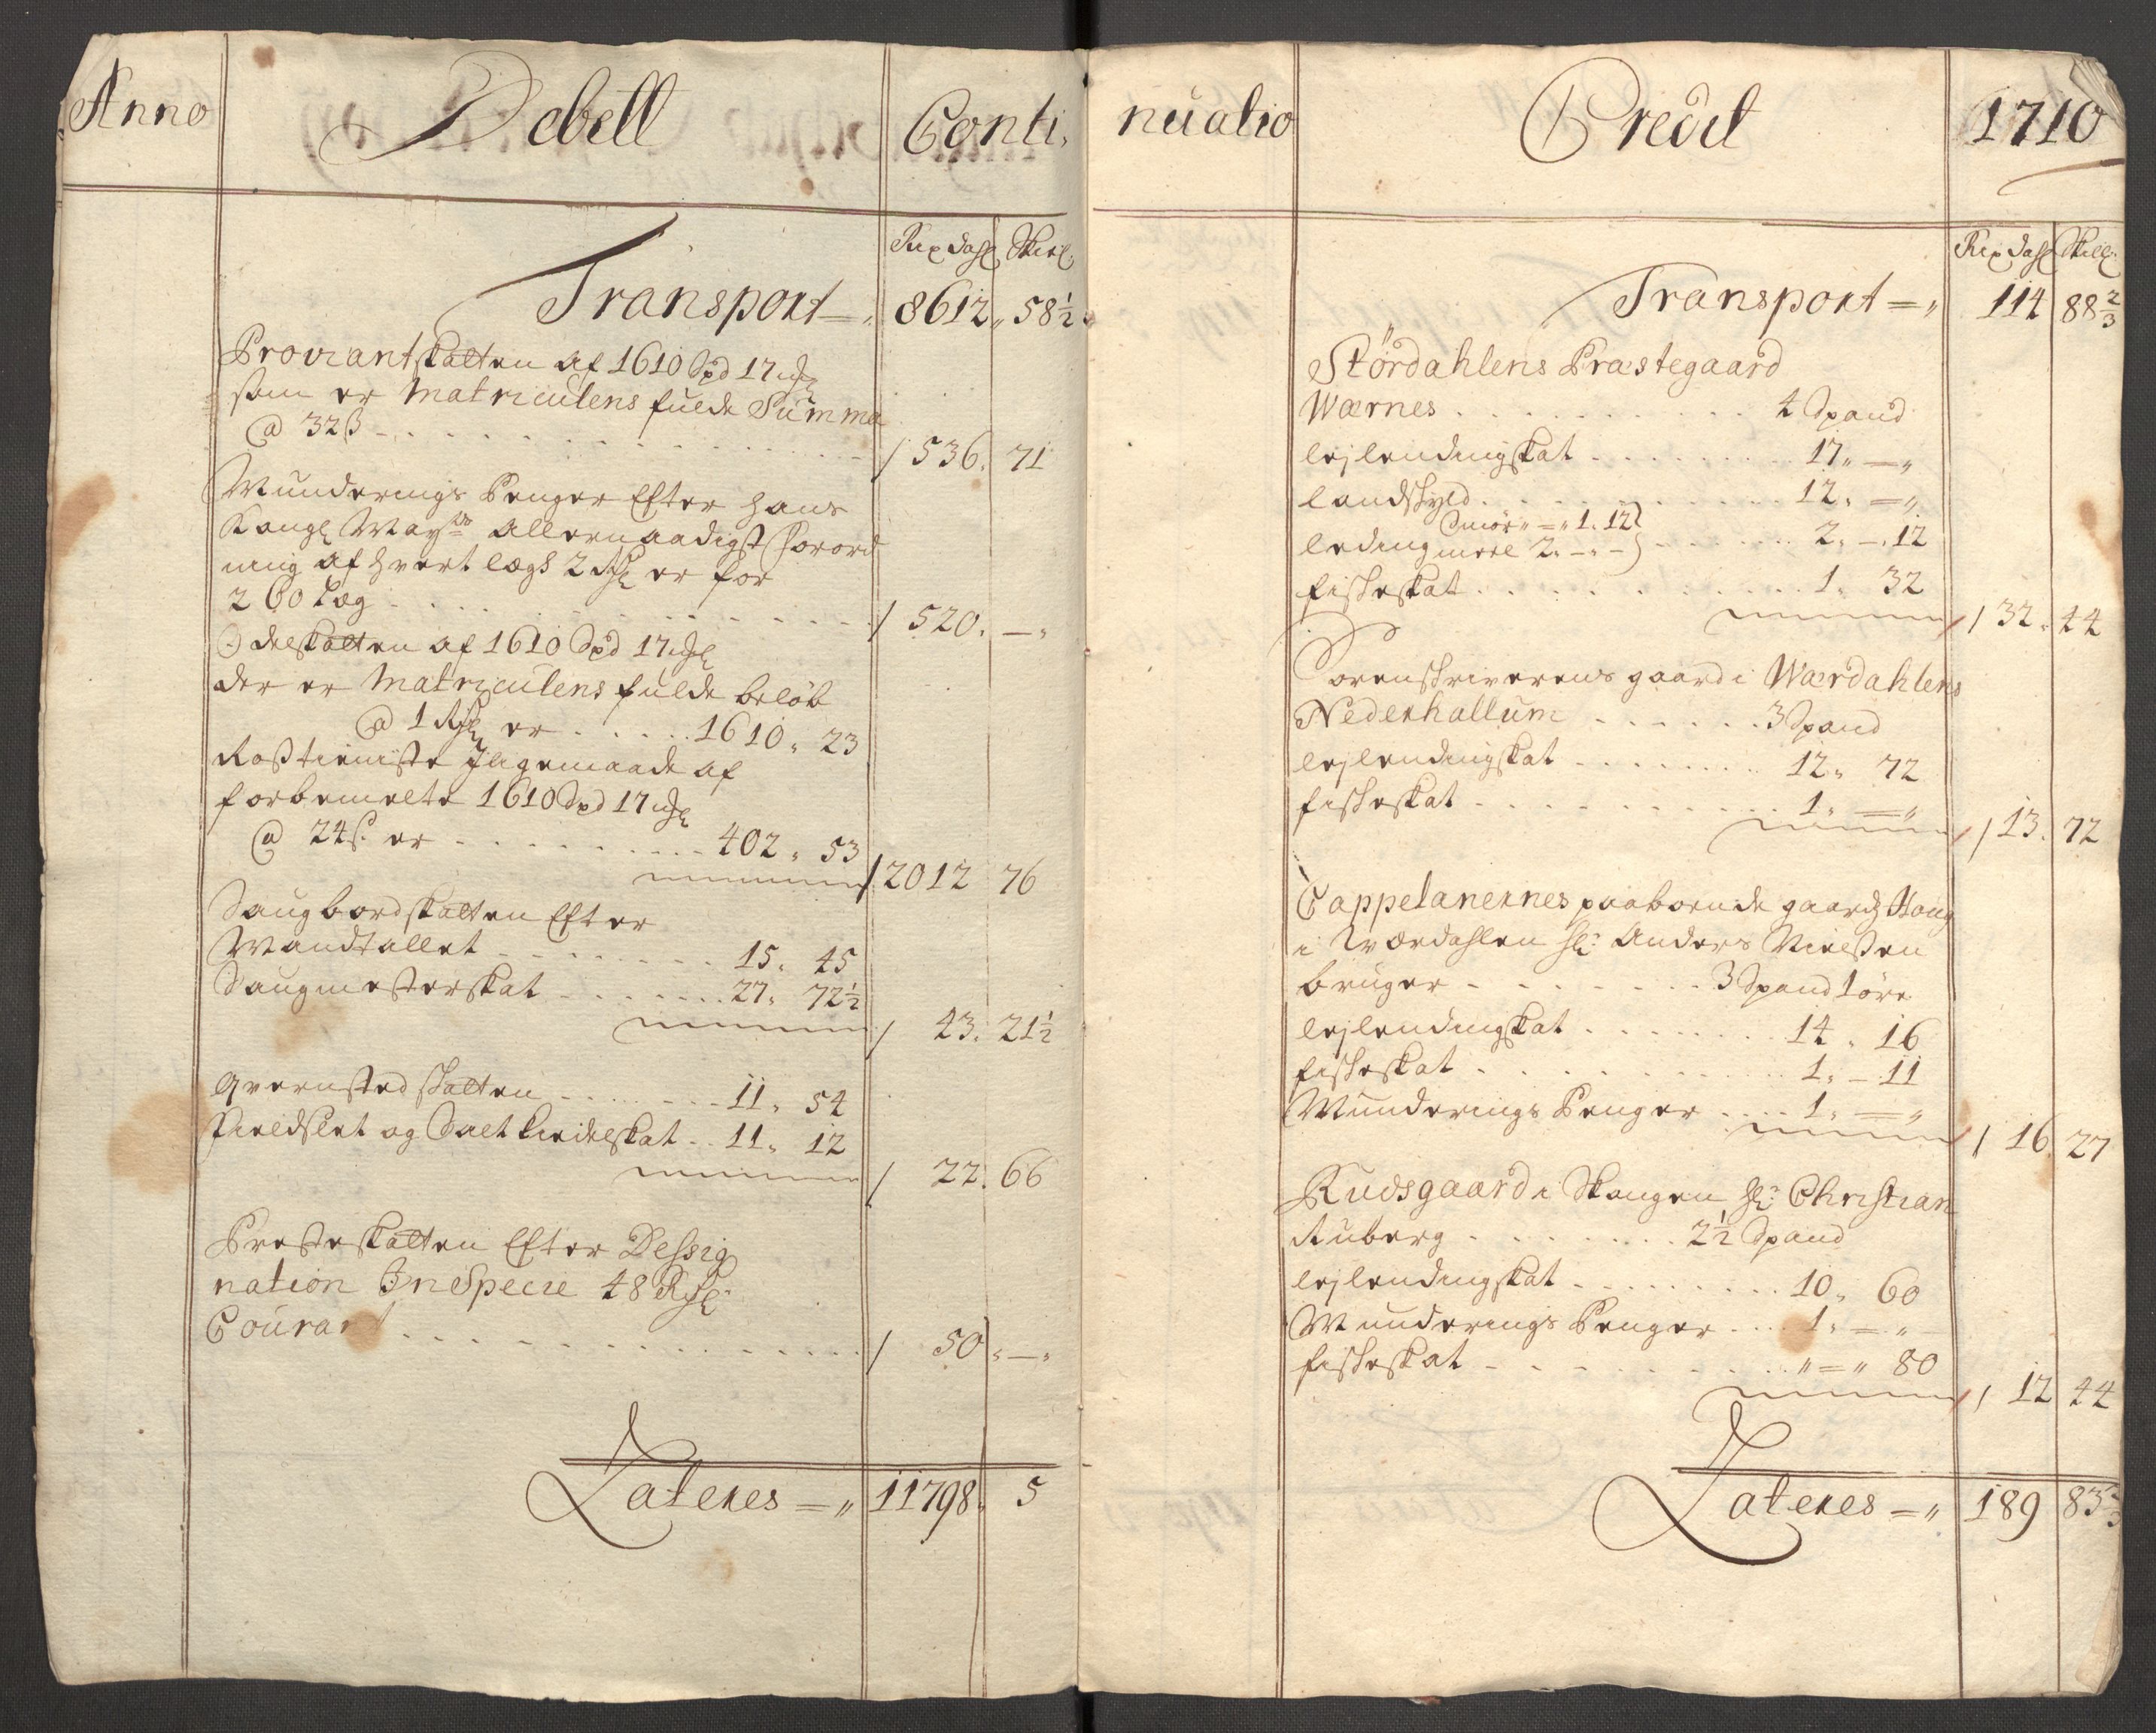 Anno Debett Conti:
Rixdahl Skill:
Transport =, 8612, 58½
Proviantskatten af 1610 Spd 17 mkl
som er Matriculens fulde Summa
@ 32ß - / 536. 71
Munderings Penger Efter Hans
Kongl Mayts Allernaadigst Forord
ning af hvert lægs 2 Rdl er for
260 Læg / 520. —
Odelskatten af 1610 Spd 17 mkl
der er Matriculens fulde beløb
@ 1 Rdl er 1610, 23
Rosstieniste Jligemaade af
forbemelte 1610 Spd 17 mkl
@ 24ß er 402, 53
/ 2012 76
Saugbordskatten Efter
Mandtallet 15, 45
Saugmesterskat 27, 72½
/ 43. 21½
Qvernsted skatten 11, 54
Fieldslet og Saltkiedelskat 11, 12
/ 22. 66
Presteskatten Efter Dessig
nation In Specie 48 Rdl
Courant / 50, —
Lateres =, 11798, 5
nuatio Credit 1710
Rixdahl Skill:
Transport =, 114 88⅔
Størdahlens Præstegaard
Wærnes 4 Spand
lejlendingskat 17, —
landskyld 12, =
Smør, =, 1. 12
leding meel 2, —, — 2, — 12
fiskeskat 1, 32
/ 32, 44
Sorenskriverens gaard i Wærdahlens
Nederhallum 3 Spand
lejlendingskat 12, 72
fiskeskat 1, =
/ 13. 72
Cappelanernes paaboende gaard Houg
i Værdahlen Hr: Anders Nielssen
bruger 3 Spand 1 øre
lejlendingskat 14, 16
fiskeskat 1, — 11
Munderings Penger 1, =
/ 16. 27
Rudsgaard i Skongen Hr: Christian
Ruberg 2½ Spand
lejlendingskat 10, 60
Munderings Penger 1, =
fiskeskat " = " 80
/ 12 44
Lateres =, 189 83⅔